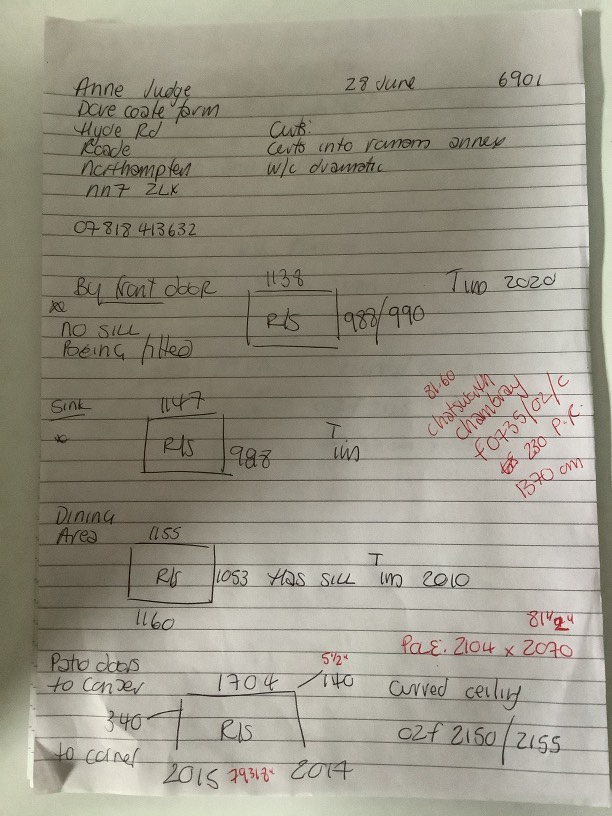 Anne Judge 28 June 6901
Dove coate farm
Hyde Rd
Roade
Northampton
nn7 2LX
certs into annex
w/c
07818 413632
By front door 1138 2020
R/S 988/990
no sill
Being fitted
Sink 1147
R/S 988
81.60
chatsworth
chambray
f0735/02/c
230 P.R.
1370 cm
Dining
Area 1155
R/S 1053 Has sill 2010
1160
81"2"
Pole. 2104 x 2070
Patio doors 5 1/2"
to 1704 140 curved ceiling
340 R/S 02f 2150/2155
to corner
2015 79 3/8" 2014